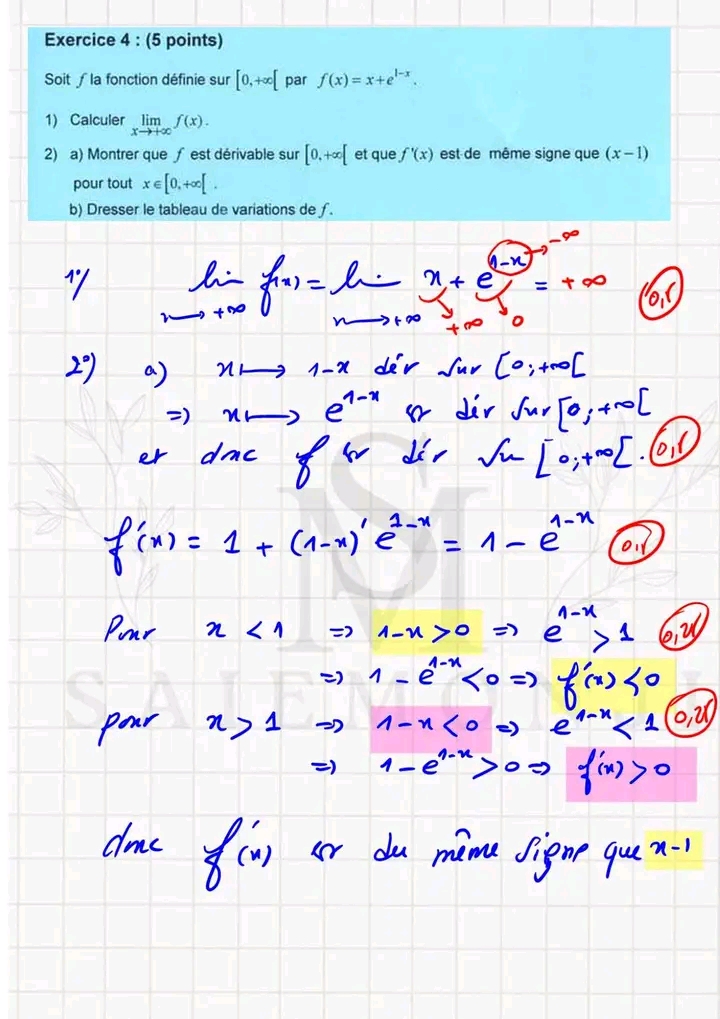 Exercice 4 : (5 points)
Soit f la fonction définie sur [0,+∞[ par f(x) = x+e^{1-x}.
1) Calculer lim_{x→+∞} f(x).
2) a) Montrer que f est dérivable sur [0,+∞[ et que f'(x) est de même signe que (x−1)
pour tout x∈[0,+∞[ .
b) Dresser le tableau de variations de f.
1°/ lim_{x→+∞} f(x) = lim_{x→+∞} x + e^{1-x} = +∞ 0,5
→ -∞
+∞ 0
2°) a) x ↦ 1-x dér sur [0;+∞[
=> x ↦ e^{1-x} est dér sur [0;+∞[
et donc f est dér sur [0;+∞[. 0,5
f'(x) = 1 + (1-x)' e^{1-x} = 1 - e^{1-x} 0,5
Pour x < 1 => 1-x > 0 => e^{1-x} > 1 0,25
=> 1 - e^{1-x} < 0 => f'(x) < 0
SALEM
pour x > 1 => 1-x < 0 => e^{1-x} < 1 0,25
=> 1-e^{1-x} > 0 => f'(x) > 0
donc f'(x) est du même signe que x-1